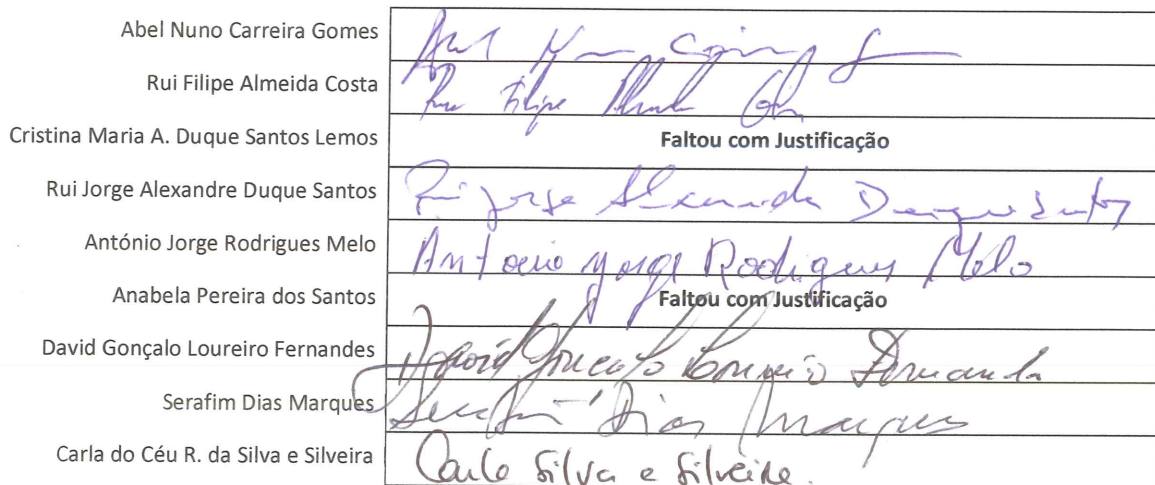 Abel Nuno Carreira Gomes
Rui Filipe Almeida Costa Rui Filipe Almeida Costa
Cristina Maria A. Duque Santos Lemos Faltou com Justificação
Rui Jorge Alexandre Duque Santos Rui Jorge Alexandre Duque Santos
António Jorge Rodrigues Melo António Jorge Rodrigues Melo
Anabela Pereira dos Santos Faltou com Justificação
David Gonçalo Loureiro Fernandes David Gonçalo Loureiro Fernandes
Serafim Dias Marques Serafim Dias Marques
Carla do Céu R. da Silva e Silveira Carla Silva e Silveira.